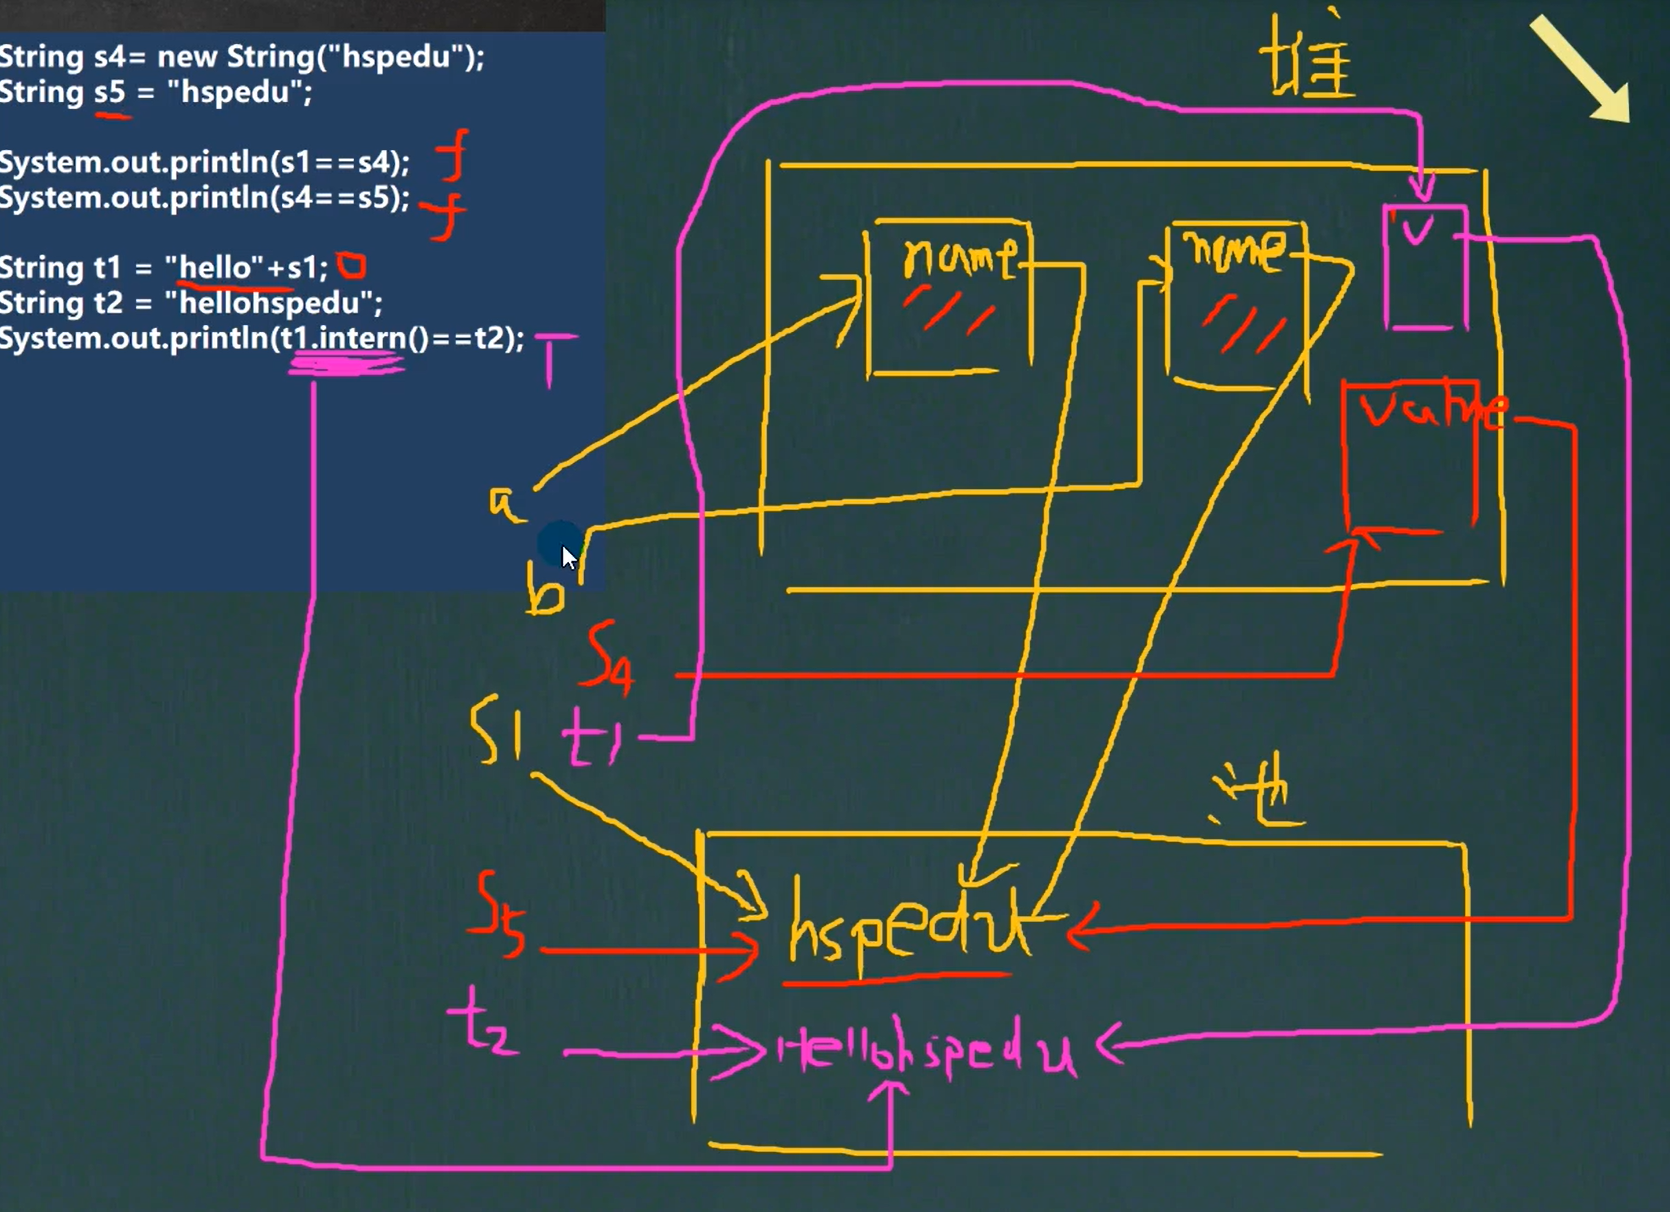 String s4= new String("hspedu");
String s5 = "hspedu";
System.out.println(s1==s4); f
System.out.println(s4==s5); f
String t1 = "hello"+s1;
String t2 = "hellohspedu";
System.out.println(t1.intern()==t2); T
堆
name
name
v
value
a
b
S4
S1
t1
池
S5
hspedu
t2
Hellohspedu